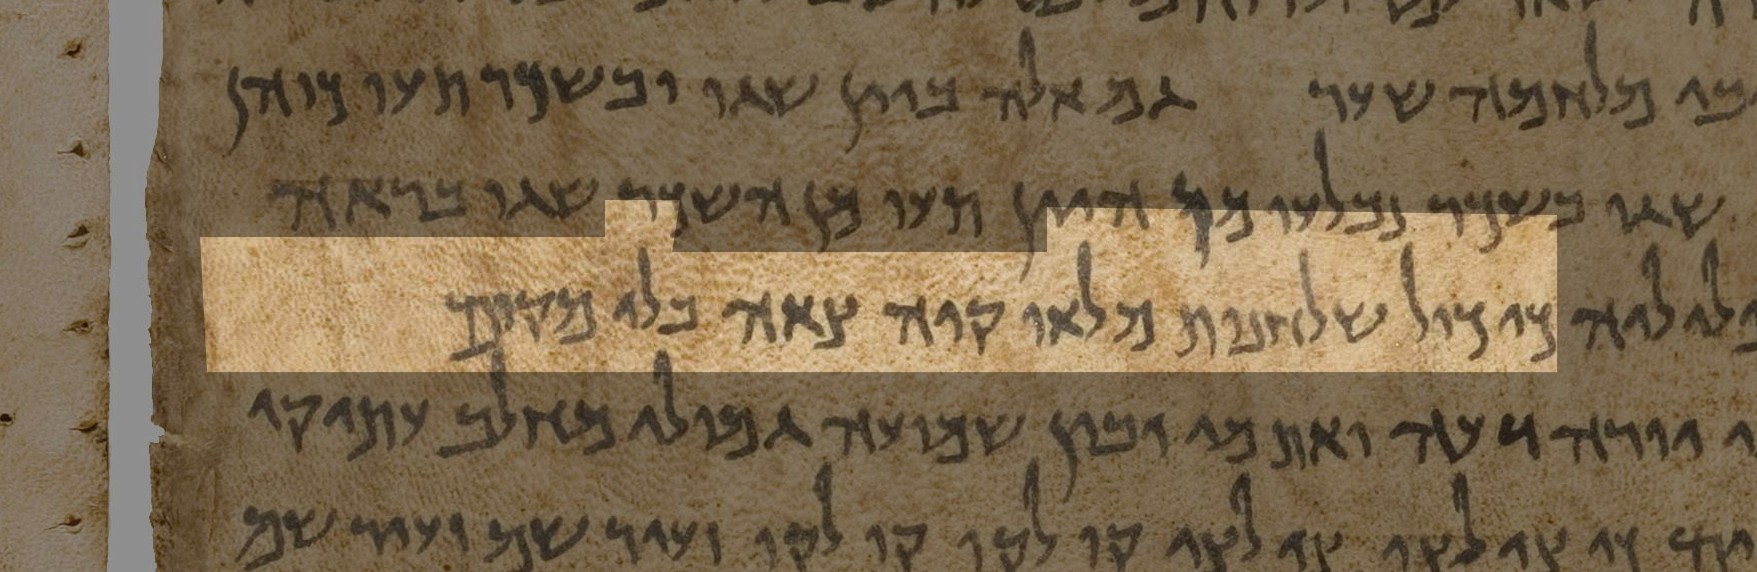 מלחמה שער גם אלה ביין שגו ובשכר תעו כוהן
שגו בשכר נבלעו מן היין תעו מן השכר שגו בראה
כי כול שלחנות מלאו קיה צאה בלי מקום
יורה דעה ואת מי יבין שמועה גמולי מחלב עתיקי
כי צו לצו צו לצו קו לקו קו לקו זעיר שם זעיר שם